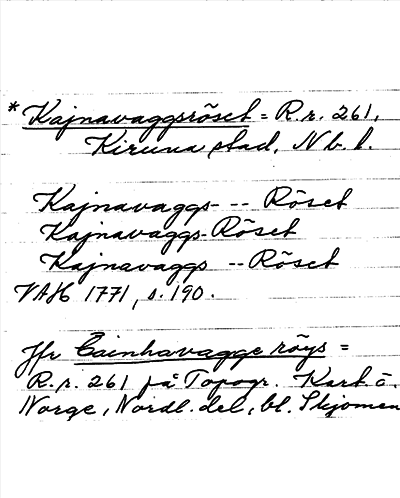 * Kajnavaggsröset = R.r. 261,
Kiruna stad, Nb. l.
Kajnavaggs- -- Röset
Kajnavaggs-Röset
Kajnavaggs -- Röset
VAH 1771, s. 190.
Jfr Cainhavagge röys =
R.r. 261 på Topogr. Kart ö.
Norge, Nordl. del, bl. Skjomen